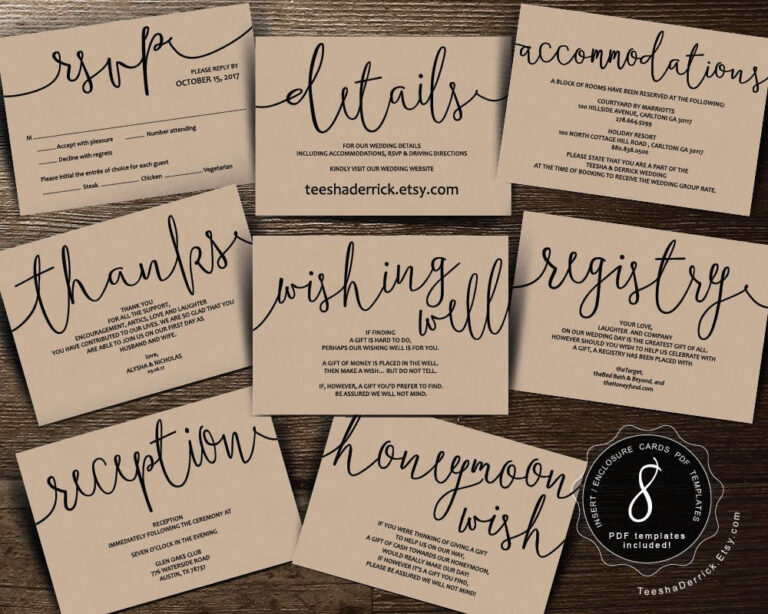 rsvp
PLEASE REPLY BY
OCTOBER 15, 2017
M
Accept with pleasure Number attending
Decline with regrets
Please initial the entrée of choice for each guest
Steak Chicken Vegetarian
details
FOR OUR WEDDING DETAILS
INCLUDING ACCOMMODATIONS, RSVP & DRIVING DIRECTIONS
KINDLY VISIT OUR WEDDING WEBSITE
teeshaderrick.etsy.com
accommodations
A BLOCK OF ROOMS HAVE BEEN RESERVED AT THE FOLLOWING:
COURTYARD BY MARRIOTTS
100 HILLSIDE AVENUE, CARLTON GA 30117
278.664.5299
HOLIDAY RESORT
100 NORTH COTTAGE HILL ROAD, CARLTON GA 30117
880.838.0500
PLEASE STATE THAT YOU ARE A PART OF THE
TEESHA & DERRICK WEDDING
AT THE TIME OF BOOKING TO RECEIVE THE WEDDING GROUP RATE.
thanks
THANK YOU
FOR ALL THE SUPPORT,
ENCOURAGEMENT, ANTICS, LOVE AND LAUGHTER
YOU HAVE CONTRIBUTED TO OUR LIVES. WE ARE SO GLAD THAT YOU
ARE ABLE TO JOIN US ON OUR FIRST DAY AS
HUSBAND AND WIFE.
love,
ALYSHA & NICHOLAS
09.06.17
wishing
well
IF FINDING
A GIFT IS HARD TO DO,
PERHAPS OUR WISHING WELL IS FOR YOU.
A GIFT OF MONEY IS PLACED IN THE WELL.
THEN MAKE A WISH... BUT DO NOT TELL.
IF, HOWEVER, A GIFT YOU'D PREFER TO FIND.
BE ASSURED WE WILL NOT MIND.
registry
YOUR LOVE,
LAUGHTER AND COMPANY
ON OUR WEDDING DAY IS THE GREATEST GIFT OF ALL.
HOWEVER SHOULD YOU WISH TO HELP US CELEBRATE WITH
A GIFT, A REGISTRY HAS BEEN PLACED WITH
theTarget,
theBed Bath & Beyond, and
theHoneyfund.com
reception
RECEPTION
IMMEDIATELY FOLLOWING THE CEREMONY AT
SEVEN O'CLOCK IN THE EVENING
GLEN OAKS CLUB
776 WATERSIDE ROAD
AUSTIN, TX 78737
honeymoon
wish
IF YOU WERE THINKING OF GIVING A GIFT
TO HELP US ON OUR WAY,
A GIFT OF CASH TOWARDS OUR HONEYMOON,
WOULD REALLY MAKE OUR DAY!
IF HOWEVER IT'S A GIFT YOU FIND,
PLEASE BE ASSURED WE WILL NOT MIND!
INSERT / ENCLOSURE CARDS PDF TEMPLATES
8
PDF templates
included!
TeeshaDerrick.Etsy.com